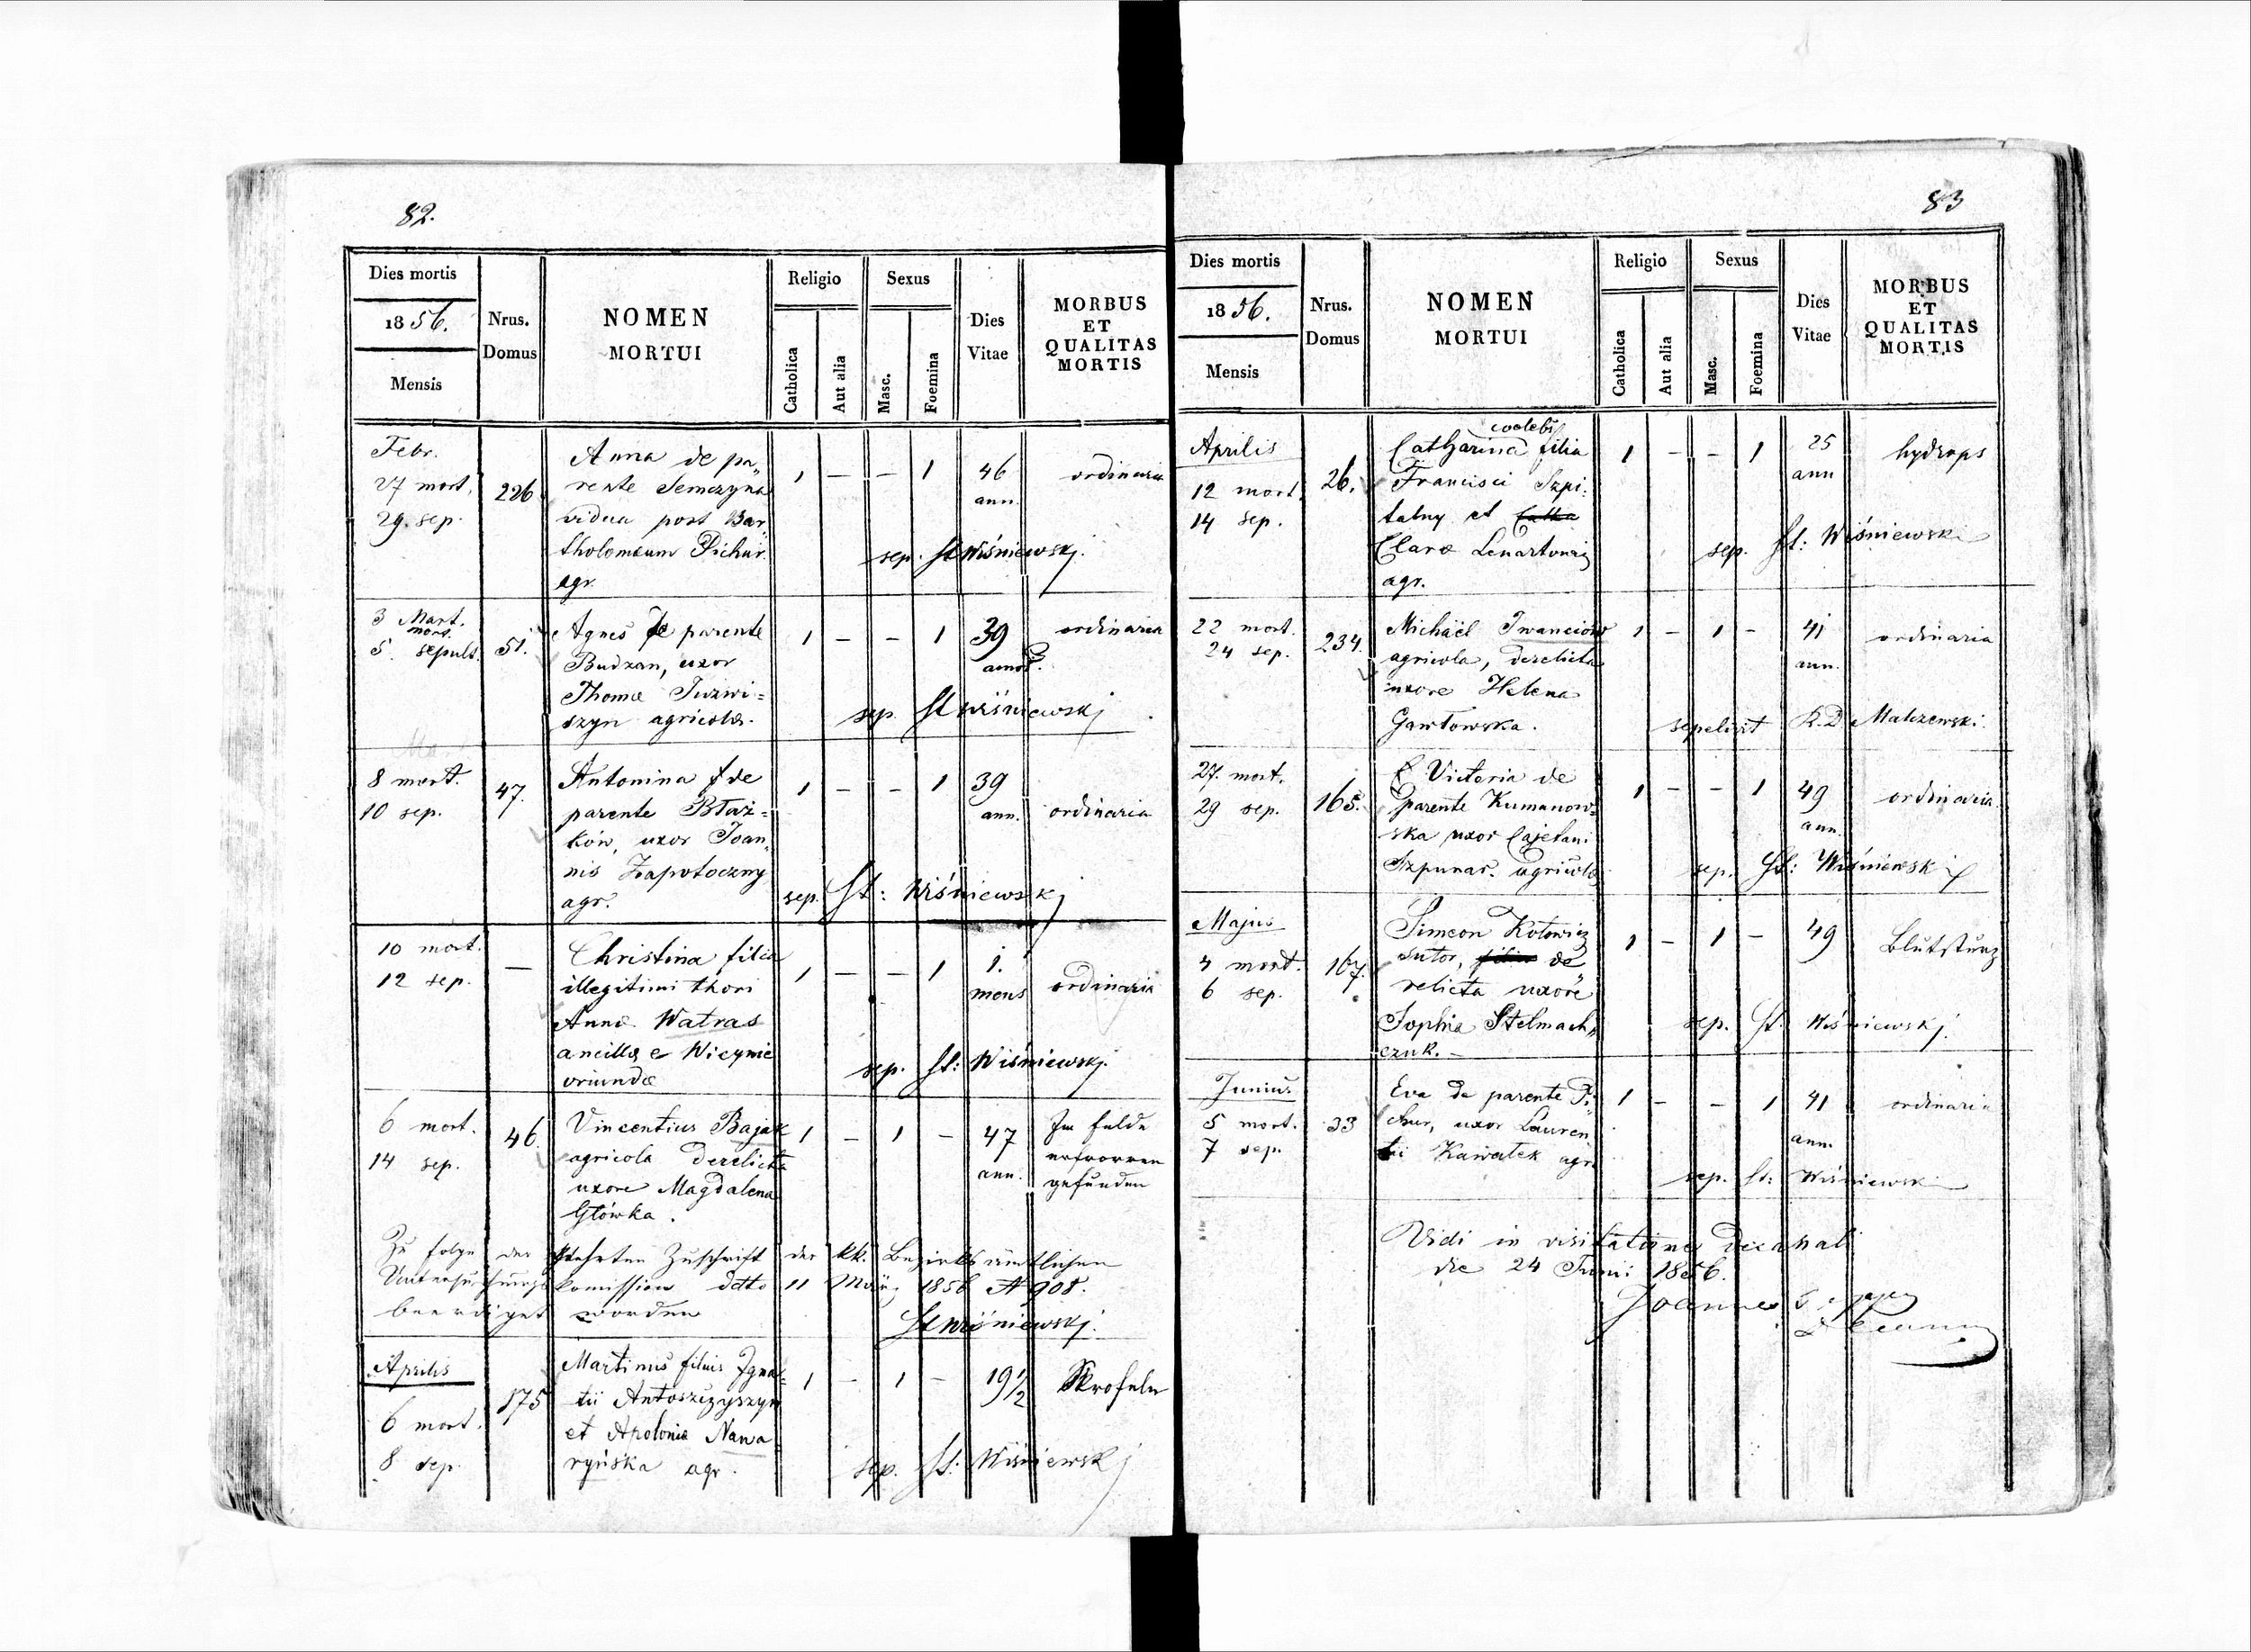 82.
Dies mortis
1856.
Mensis
Nrus.
Domus
NOMEN
MORTUI
Religio
Catholica
Aut alia
Sexus
Masc.
Foemina
Dies
Vitae
MORBUS
ET
QUALITAS
MORTIS
Febr.
27 mort.
29. sep.
226
Anna de pa„
rente Semczyna
vidua post Bar„
tholomeum Pichur.
agr.
1 — — 1
46
ann.
ordinaria
sep. St Wiśniewskj.
3 Mart.
mort.
5. sepult.
51.
Agnes de parente
Budzan, uxor
Thomæ Juzwi=
szyn agricolæ.
1 — — 1
39
ordinaria
sep. St Wiśniewskj
8 mort.
10 sep.
47.
Antonina de
parente Błaż=
ków, uxor Joan„
nis Zapotoczny
agr.
1 — — 1
39
ann.
ordinaria
sep. St: Wiśniewskj
10 mort.
12 sep.
—
Christina filia
illegitimi thori
Annæ Watras
ancillæ e Wicynie
oriundæ
1 — — 1
1.
mens
ordinaria
sep. St: Wiśniewskj.
6 mort.
14 sep.
46.
Vincentius Bajak
agricola derelicta
uxore Magdalena
Główka.
1 — 1 —
47
ann.
Im felde
erfrorren
gefunden
Zu folge der Zuschrift der kk. Bezirksämtlichen
Untersuchungs komission ddto 11 März 1856 N 908.
beerdiget worden
St Wiśniewskj.
Aprilis
6 mort.
8 sep.
175
Martinus filius Igna=
tii Antoszczyszyn
et Apoloniæ Nawa
ryńska agr.
1 — 1 —
19 1/2
Skrofeln
sep. St: Wiśniewskj
83
Dies mortis
1856.
Mensis
Nrus.
Domus
NOMEN
MORTUI
Religio
Catholica
Aut alia
Sexus
Masc.
Foemina
Dies
Vitae
MORBUS
ET
QUALITAS
MORTIS
Aprilis
12 mort.
14 sep.
26.
coelebs
Catharina filia
Francisci Szpi=
talny et
Claræ Lenartowicz
agr.
1 — — 1
25
ann
hydrops
sep. St: Wiśniewski
22 mort.
24 sep.
234.
Michaël Iwanciów
agricola, derelicta
uxore Helena
Gawłowska.
1 — 1 —
41
ann.
ordinaria
sepelivit R.D. Malczewski.
27. mort.
29 sep.
165.
Victoria de
parente Kumanow=
ska uxor Cajetani
Szpunar. agricolæ
1 — — 1
49
ann.
ordinaria
sep. St: Wiśniewski
Majus
4 mort.
6 sep.
167.
Simeon Kotowicz
sutor, de
relicta uxore
Sophia Stelmach„
czuk.—
1 — 1 —
49
Blutsturz
sep. St. Wiśniewskj.
Junius
5 mort.
7 sep.
33
Eva de parente Pi
chur, uxor Lauren
tii Kawałek agr.
1 — — 1
41
ann.
ordinaria
sep. St: Wiśniewski
Vidi in visitatione Decanali
die 24 Junii 1856.
Joannes